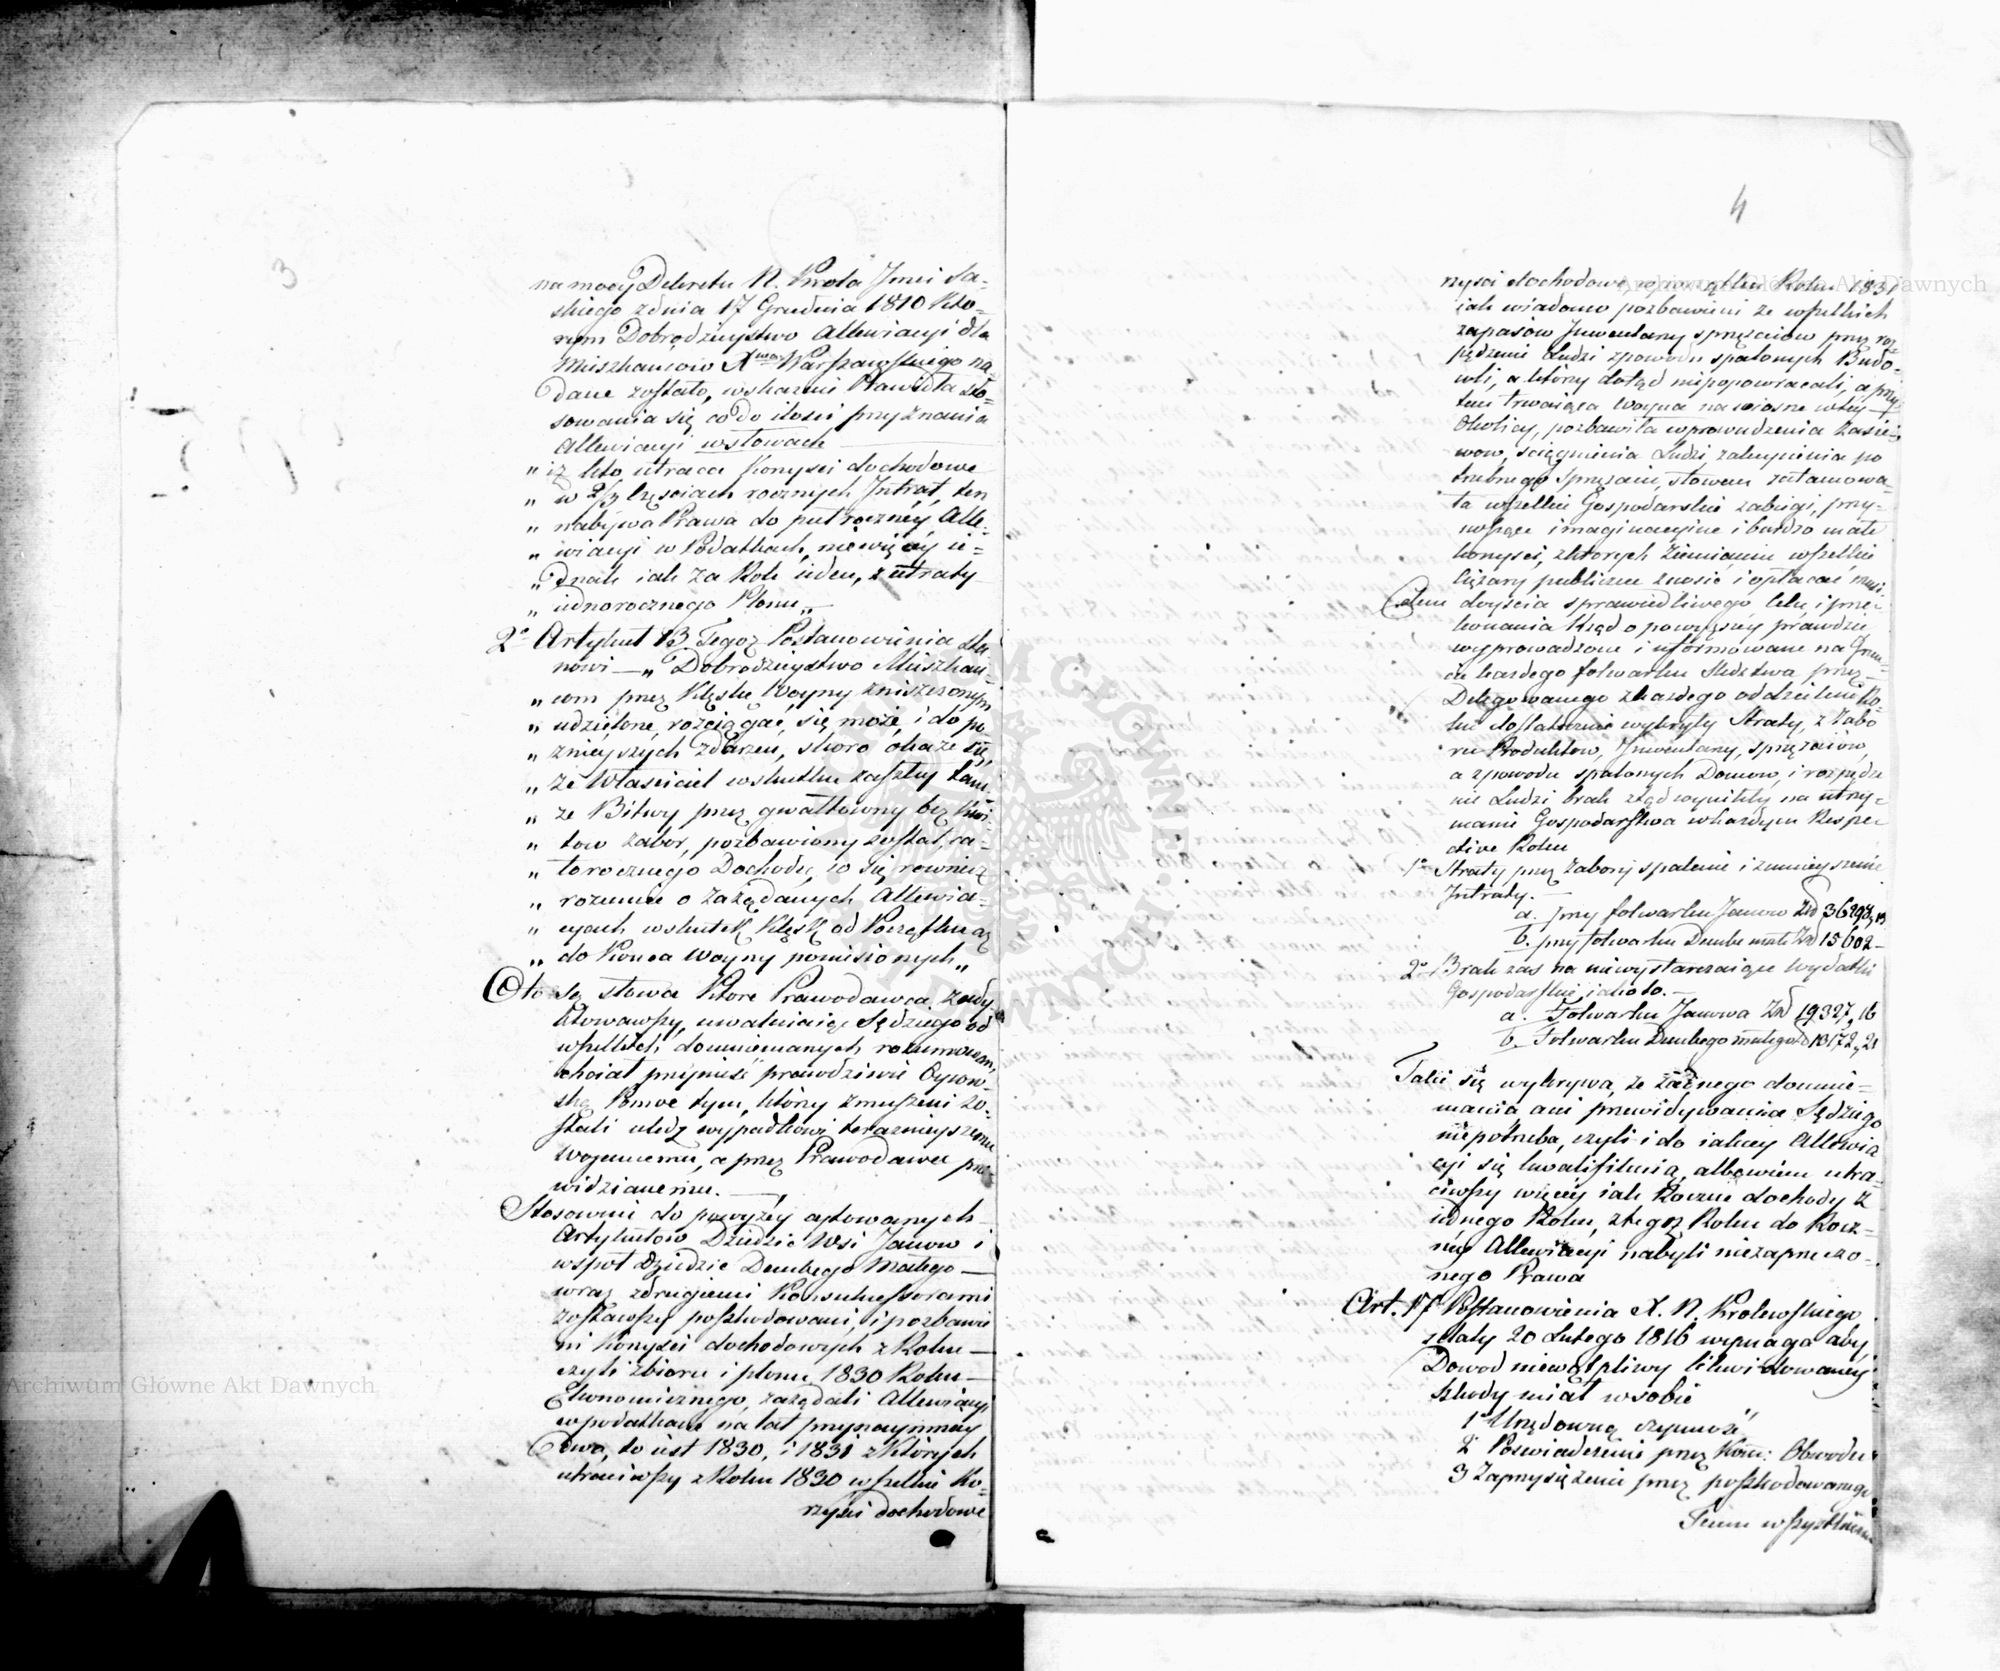 3
na mocy Dekretu N. Krola Jmci Sa-
skiego z dnia 17 Grudnia 1810 Któ-
rym Dobrodzieystwo Allewiacyi dla
Mieszkancow Xtwa Warszawskiego na
dane zostało, wskazani Prawidła sto-
sowania się co do ilosci przyznania
Allewiacyi w słowach
„ iż kto utraca Korzysci dochodowe
„ w 2/3 Częsciach rocznych Intrat, ten
„ nabywa Prawa do puł roczney Alle-
„ wiacyi w Podatkach, niewięcey ie-
„ dnak iak za Rok ieden, z utraty
„ iednorocznego Plonu „
2o Artykuł 13. Tegoż Postanowienia sta-
nowi — „ Dobrodzieystwo Mieszkan-
„ com przez Klęskę Woyny zniszczonym
„ udzielone, rozciągać się może, i do po
„ znieyszych zdarzeń, skoro okaże się,
„ że Własciciel w skutku zaszłey tam-
„ że Bitwy przez gwałtowny bez kwi-
„ tow zabor, pozbawiony został, ca-
„ łorocznego Dochodu, to się rownież
„ rozumie o zażądanych Allewia-
„ cyach w skutek Klęsk od Początku aż
„ do Konca Woyny poniesionych „
Oto są słowa Które Prawodawca zady
ktowawszy, uwalniaiąc Sędziego od
wszelkich domniemanych rozumowan,
chciał przynieść prawdziwie Oycow-
ską Pomoc tym, którzy zmuszeni zo-
stali uledz wypadkowi terazmieyszemu
Woyennemu, a przez Prawodawcę prze-
widzianemu. —
Stosownie do powyżey cytowanych
Artykułow Dziedzic Wsi Janow i
wspoł Dziedzic Dembego Małego —
wraz z drugiemi Konsukcessorami
zostawszy poszkodowani, i pozbawie
ni Korzysci dochodowych z Roku —
czyli zbioru i plonu 1830 Roku —
Ekonomicznego, zażądali Allewiacyi
w podatkach na lat przynaymniey
dwa, to iest 1830. i 1831 z których
utraciwszy z Roku 1830 wszelkie Ko-
rzysci dochodowe
4
rzysci dochodowe, w początku Roku 1831
iak wiadomo pozbawieni ze wszelkich
zapasow Inwentarzy sprzęciow przy roz
pędzeniu Ludzi z powodu spalonych Budo-
wli, a którzy dotąd niepopowracali, a przy
tem trwaiąca Woyna na wiosne w tey
Okolicy, pozbawiła wprowadzenia Zasie-
wow, sciągnienia Ludzi, zakupienia po
trzebnego sprzężaiu, słowem zatamowa-
ła wszelkie Gospodarskie zabiegi, przy-
noszące imaginacyine i bardzo małe
korzysci, z ktorych Ziemianin wszelkie
ciężary publiczne znosić i opłacać musi.
Celem doyscia sprawiedliwego celu i prze-
konania Rząd o powyższey prawdzie
wyprowadzone i uformowane na Grun-
cie kazdego folwarku Sledztwa przez
Delegowanego z kazdego oddzielnie Ro-
ku dostatecznie wykryły Straty, z Zabo
ru Produktow, Inwentarzy, sprzęciow,
a z powodu spalonych Domow, i rozpędze
nie Ludzi brak ztąd wynikły na utrzy-
manie Gospodarstwa w kazdym Respec
tive Roku
1o Straty przez Zabory spalenie i zmnieyszenie
Intraty. —
a. przy folwarku Janow Złp 36298, 13
b. przy folwarku Dembe małe Złp 15602 —
2o Brak zas na niewystarczaiące Wydatki
Gospodarskie, iako to. —
a. Folwarku Janowa Złp 19327, 16
b. Folwarku Dembego małego Złp 10172, 21
Takie się wykrywa, że żadnego domnie-
mania ani przewidywania Sędziego
niepotrzeba, czyli i do iakiey Allewia
cyi się kwalifikuią, albowiem utra-
ciwszy więcey iak Roczne dochody z
iednego Roku, z tegoż Roku do Rocz-
ney Allewiacyi nabyli niezaprzeczo-
nego Prawa
Art. 17 Postanowienia X. N. Krolewskiego
z daty 20 Lutego 1816 wymaga aby
Dowod niewątpliwy likwidowaney
szkody miał w sobie
1o Urzędowną czynność
2o Poswiadczenie przez Kom: Obwodu
3 Zaprzysiężenie przez poszkodowanego
Temu wszystkiemu
Archiwum Główne Akt Dawnych
Archiwum Główne Akt Dawnych
ARCHIWUM GŁÓWNE AKT DAWNYCH